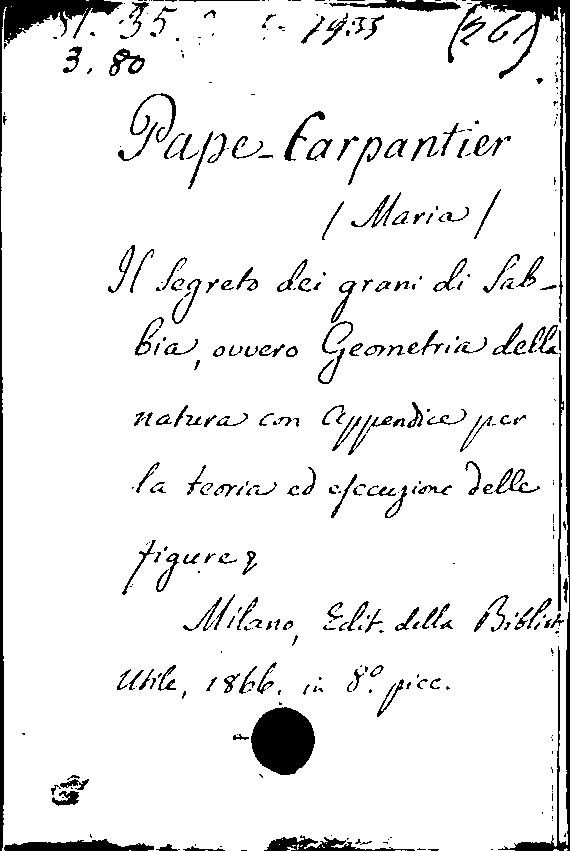 35. 1935 (261)
3. 80
Pape-Carpantier
(Maria)
Il Segreto dei grani di Sab-
bia, ovvero Geometria della
natura con Appendice per
la teoria ed esecuzione delle
figure
Milano, Edit. della Bibliot
Utile, 1866. in 8.º picc.